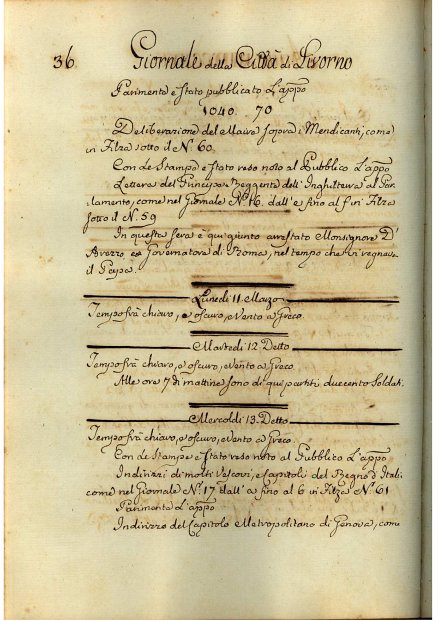 36 Giornale della Città di Livorno
Parimente è stato pubblicato L'appo
1040. 70
Deliberazione del Maire sopra i Mendicanti, come
in Filza sotto il N. 60.
Con Le Stampe è stato reso noto al Pubblico L'appo
Lettera del Principe Reggente dell'Inghilterra al Par-
lamento, come nel Giornale N. 16. dall' a fino al f in Filza
sotto il N. 59
In questa sera è qui giunto arrestato Monsignore D'
Avezzo Governatore di Roma, nel tempo che vi regnava
il Papa.
Lunedì 11. Marzo
Tempo frà chiaro, e oscuro, e Vento a Greco
Martedì 12. Detto
Tempo frà chiaro, e oscuro, e Vento a Greco.
Alle ore 7 di mattina sono di qui partiti duecento Soldati.
Mercoldì 13. Detto
Tempo frà chiaro, e oscuro, e Vento a Greco.
Con Le Stampe è stato reso noto al Pubblico L'appo
Indirizzi di molti Vescovi, e Capitoli del Regno d'Itali
come nel Giornale N. 17. dall' a fino al 6 in Filza N. 61
Parimente L'appo
Indirizzo del Capitolo Metropolitano di Genova, come